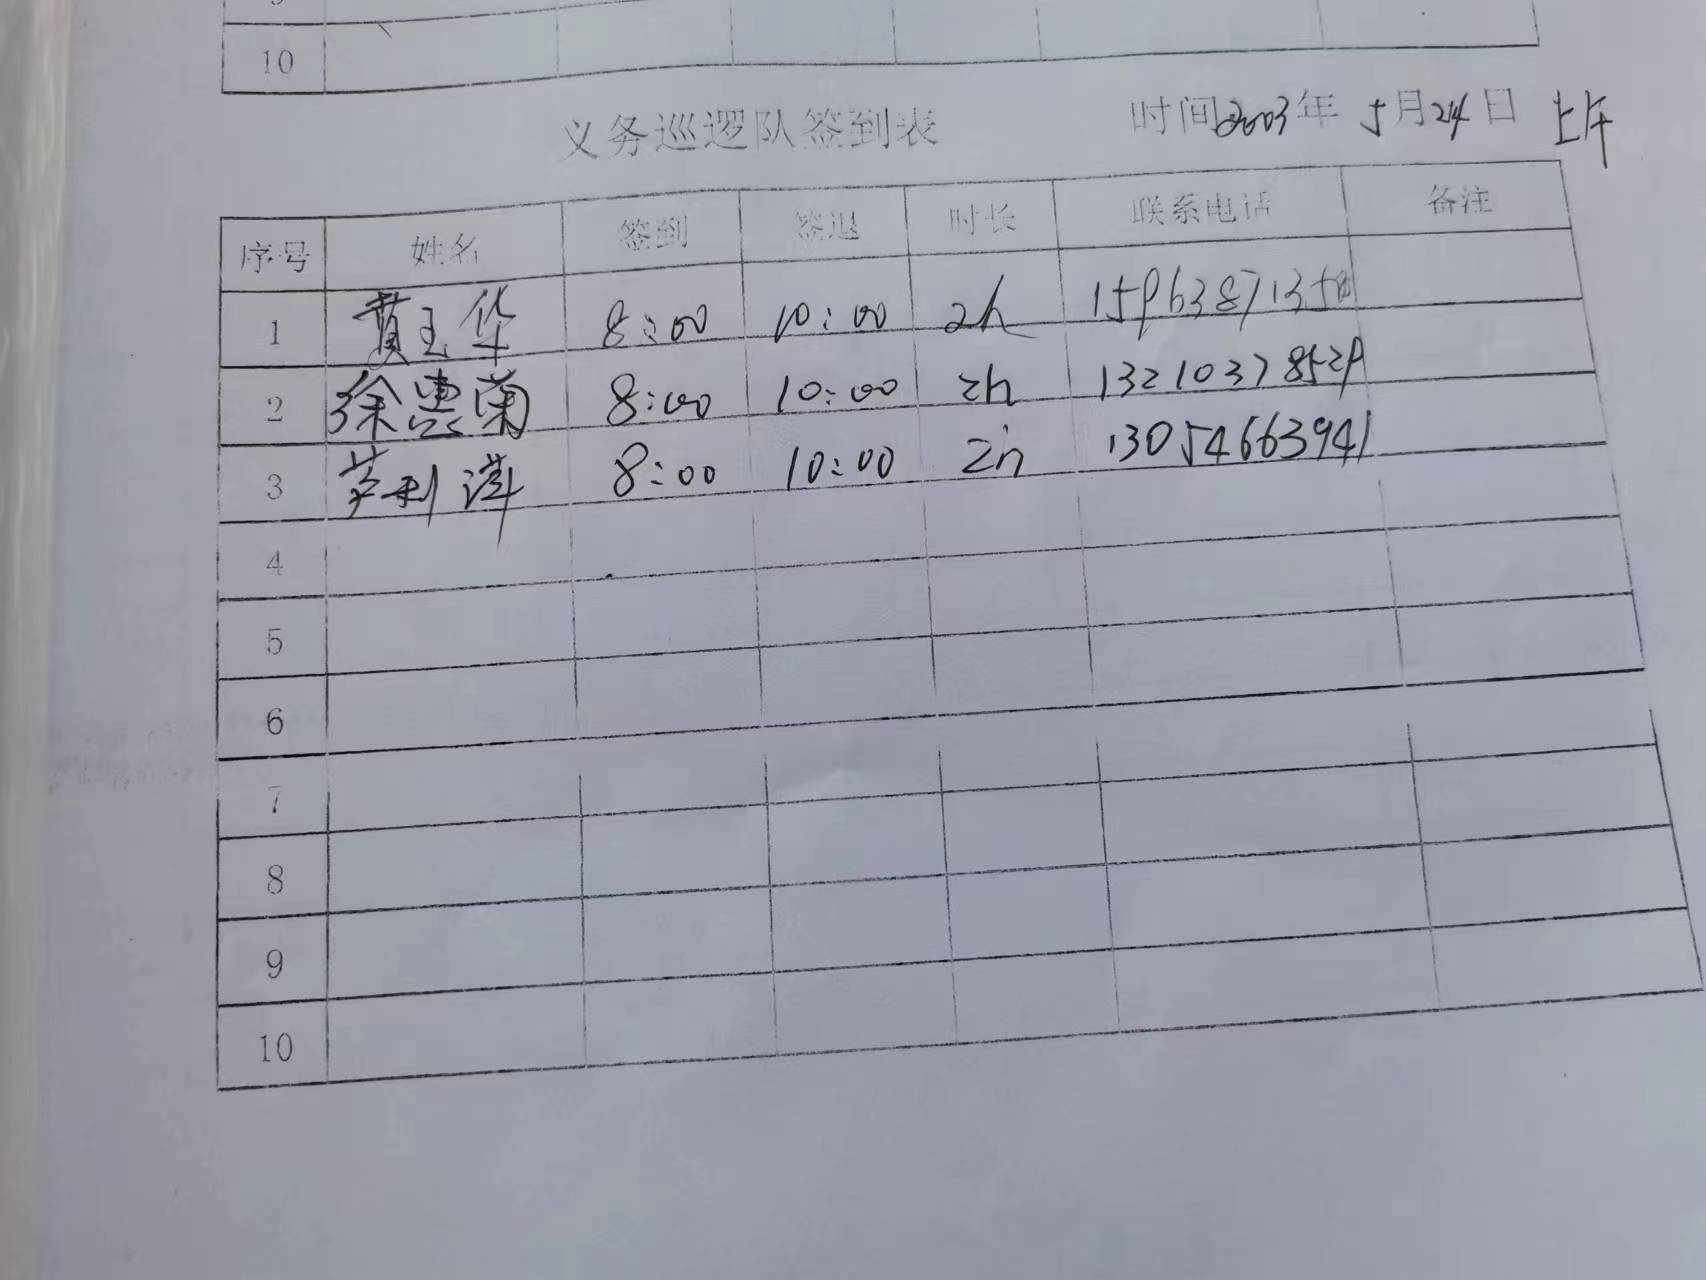 10
义务巡逻队签到表 时间2003年 5月24日 上午
序号 姓名 签到 签退 时长 联系电话 备注
1 黄玉华 8:00 10:00 2h
2 徐惠菊 8:00 10:00 2h 13210378529
3 利 8:00 10:00 2h 13054663941
4
5
6
7
8
9
10